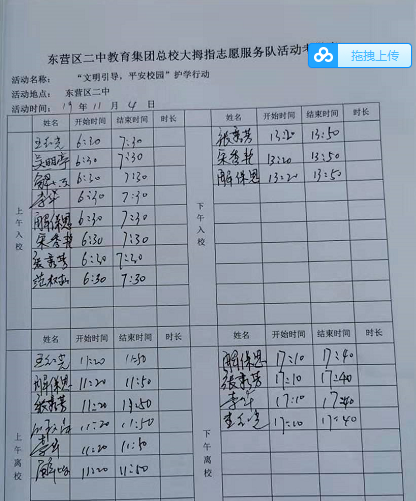 东营区二中教育集团总校大拇指志愿服务队活动考
拖拽上传
活动名称： “文明引导，平安校园”护学行动
活动地点： 东营区二中
活动时间：19年11月4日
姓名 开始时间 结束时间 时长
6:30 7:30
6:30 7:30
6:30 7:30
李军 6:30 7:30
解保恩 6:30 7:30
宋秀艳 6:30 7:30
张素芳 6:30 7:30
6:30 7:30
上午入校
姓名 开始时间 结束时间 时长
张素芳 13:20 13:50
宋秀艳 13:20 13:50
解保恩 13:20 13:50
下午入校
姓名 开始时间 结束时间 时长
11:20 11:50
解保恩 11:20 11:50
张素芳 11:20 11:50
11:20 11:50
李军 11:20 11:50
11:20 11:50
上午离校
姓名 开始时间 结束时间 时长
解保恩 17:10 17:40
张素芳 17:10 17:40
李军 17:10 17:40
17:10 17:40
下午离校